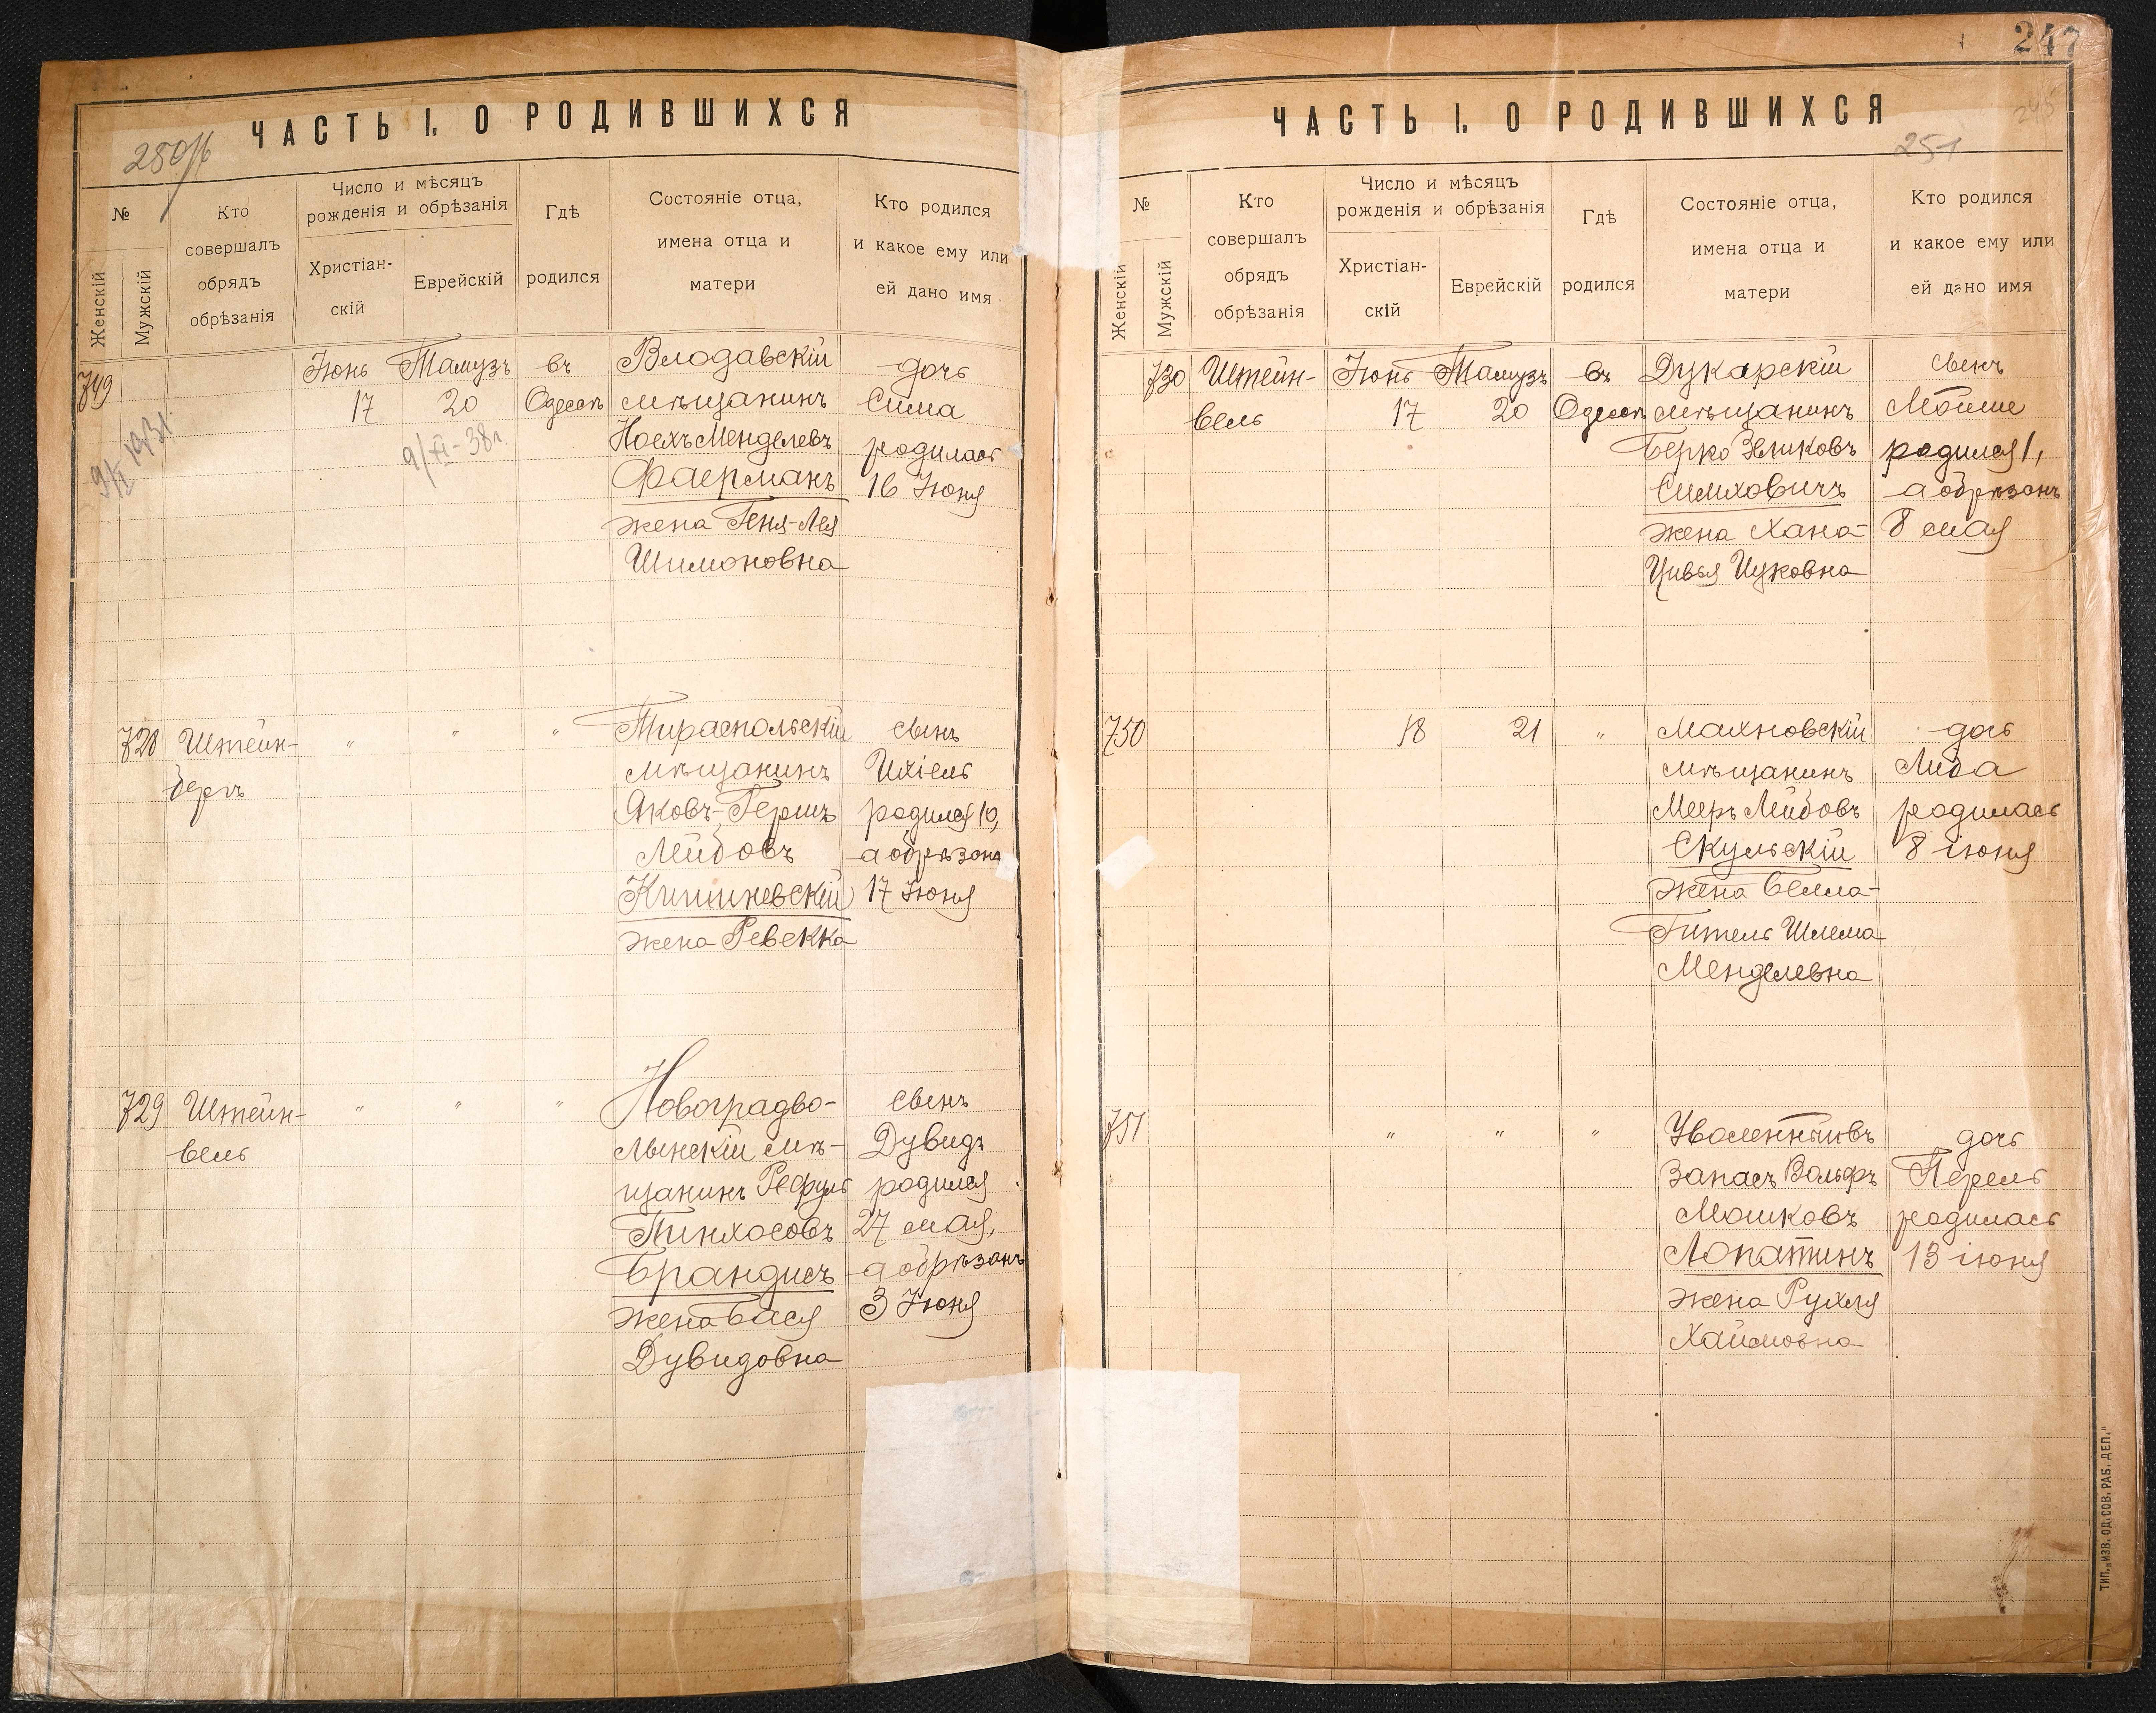 ЧАСТЬ I. О РОДИВШИХСЯ
№
Женскій
Мужскій
Кто
совершалъ
обрядъ
обрѣзанія
Число и мѣсяцъ
рожденія и обрѣзанія
Христіан-
скій
Еврейскій
Гдѣ
родился
Состояніе отца,
имена отца и
матери
Кто родился
и какое ему или
ей дано имя
749
Іюнь
17
Тамузъ
20
9/XI-38г.
въ
Одессѣ
Влодавскій
мѣщанинъ
Ноехъ Менделевъ
Фаерманъ
жена Геня-Лея
Шимоновна
дочь
Сима
родилась
16 Іюня
728
Штейн-
бергъ
"
"
"
Тираспольскій
мѣщанинъ
Яковъ-Гершъ
Лейбовъ
Кишиневскій
жена Ревекка
сынъ
Ихіель
родился 10,
а обрѣзанъ
17 Іюня
729
Штейн-
вель
"
"
"
Новоградво-
лынскій мѣ-
щанинъ Рефуль
Пинхосовъ
Брандисъ
жена Бася
Дувидовна
сынъ
Дувидъ
родился
27 мая,
а обрѣзанъ
3 Іюня
247
ЧАСТЬ I. О РОДИВШИХСЯ
251
№
Женскій
Мужскій
Кто
совершалъ
обрядъ
обрѣзанія
Число и мѣсяцъ
рожденія и обрѣзанія
Христіан-
скій
Еврейскій
Гдѣ
родился
Состояніе отца,
имена отца и
матери
Кто родился
и какое ему или
ей дано имя
730
Штейн-
вель
Іюнь
17
Тамузъ
20
въ
Одессѣ
Дукарскій
мѣщанинъ
Берко Зеликовъ
Симховичъ
жена Хана-
Цивья Ицковна
сынъ
Мойше
родился 1,
а обрѣзанъ
8 мая
750
18
21
"
Махновскій
мѣщанинъ
Мееръ Лейбовъ
Скульскій
жена Бейла-
Гитель Шлема
Менделевна
дочь
Либа
родилась
8 іюня
751
"
"
"
Запасъ Вольфъ
Мошковъ
Лопатинъ
жена Рухля
Хаимовна
дочь
Перель
родилась
13 іюня
ТИП. „ИЗВ. ОД. СОВ. РАБ. ДЕП."